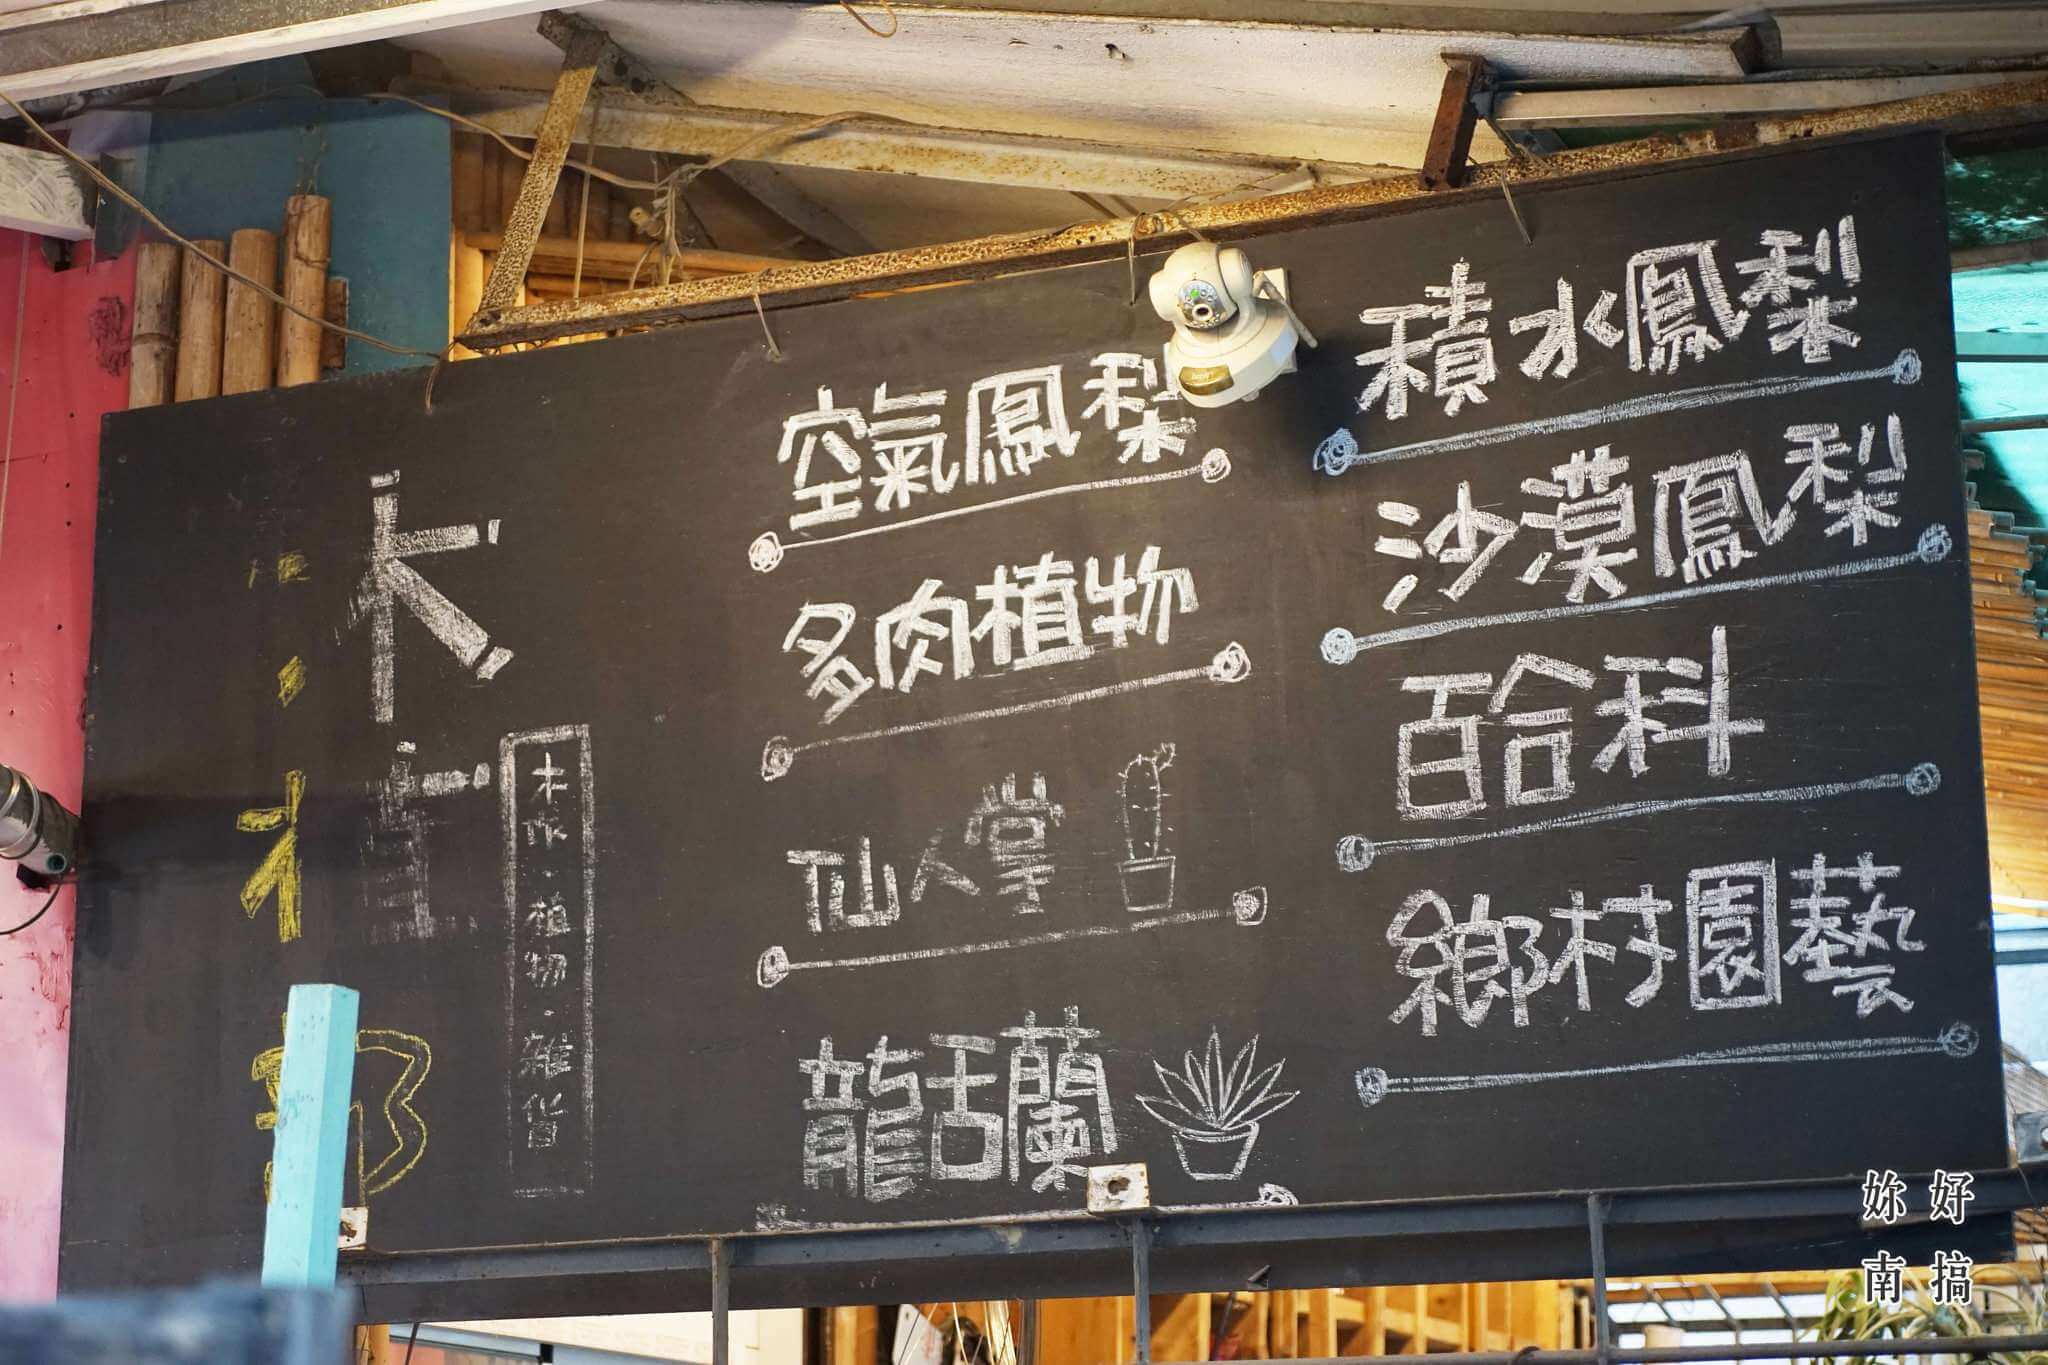 空氣鳳梨
多肉植物
仙人掌
龍舌蘭
積水鳳梨
沙漠鳳梨
百合科
鄉村園藝
木
木作·植物·雜貨
部
妳好
南搞